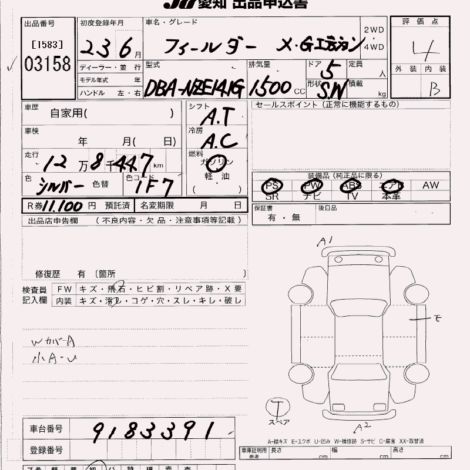 JU 愛知 出品申込書
出品番号
[1583]
03158
初度登録年月
23 6月
車名・グレード
フィールダー X・Gエディション
2WD
4WD
評価点
4
外装 内装
B
ディーラー・並行
モデル年式 年
ハンドル 左・右
型式
DBA-NZE141G
排気量
1500 CC
ドア 5 定員 人
形状 SW 積載 kg
車歴
自家用( )
シフト
A.T
セールスポイント(正常に機能するもの)
車検
年 月( )
冷房
A.C
走行
12万8千447km
燃料
ガソリン
軽油
色 シルバー 色替 色コード 1F7
装備品(純正品に限る)
PS PW ABS エアB AW
SR ナビ TV 本革
R券 11,100円 預託済 名変期限 月 日
保証書 有・無
後日品
出品店申告欄 (不良内容・欠品・注意事項等記載)
修復歴 有〔箇所 〕
検査員記入欄
FW キズ・飛石・ヒビ割・リペア跡・X要
内装 キズ・汚れ・コゲ・穴・スレ・キレ・破し
A1
WカバーA
小A-U
E
T
スペア
A2
車台番号 9183391
登録番号
車庫証明用参考 長さ cm 幅 cm 高さ cm